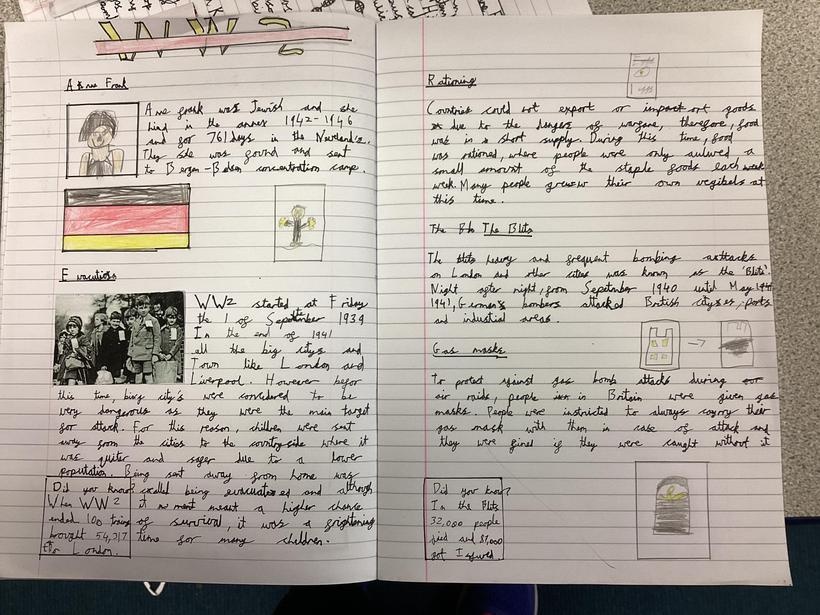 WW2
Anne Frank
Anne frank was Jewish and she
hind in the annex 1942-1946
and for 761 days in the
They she was found and sent
to Bergen-Belsen concentration camp.
Evacution
WW2 started at Friday
the 1 of September 1939
In the end of 1941
all the big citys and
Town like London and
Liverpool. However befor
this time, bing city's were considered to be
very dangerous as they were the main target
for attack. For this reason, children were sent
away from the cities to the countryside where it
was quiter and safer due to a lower
population. Being sent away from home was
called being evacuated and although
it meant a higher chance
of survival, it was a frightening
time for many children.
Did you know?
When WW2
ended 100 trains
brought 54,317
to London.
Rationing
Countries could not export or import goods
due to the dangers of warfare, therefore, food
was in a short supply. During this time, food
was rationed, where people were only allowed a
small amount of the staple goods each week
week. Many people grew their own vegibals at
this time.
The Blitz
The heavy and frequent bombing attacks
on London and other cities was known as the 'Blitz'.
Night after night, from September 1940 until May
1941, German bombers attacked British cityses, ports
and industrial areas.
Gas masks.
To protect against gas bomb attacks during
air raids, people in Britain were given gas
masks. People were instricted to always carry their
gas mask with them in case of attack and
they were fined if they were caught without it
Did you know?
In the Blitz
32,000 people
died and 87,000
got Injured.